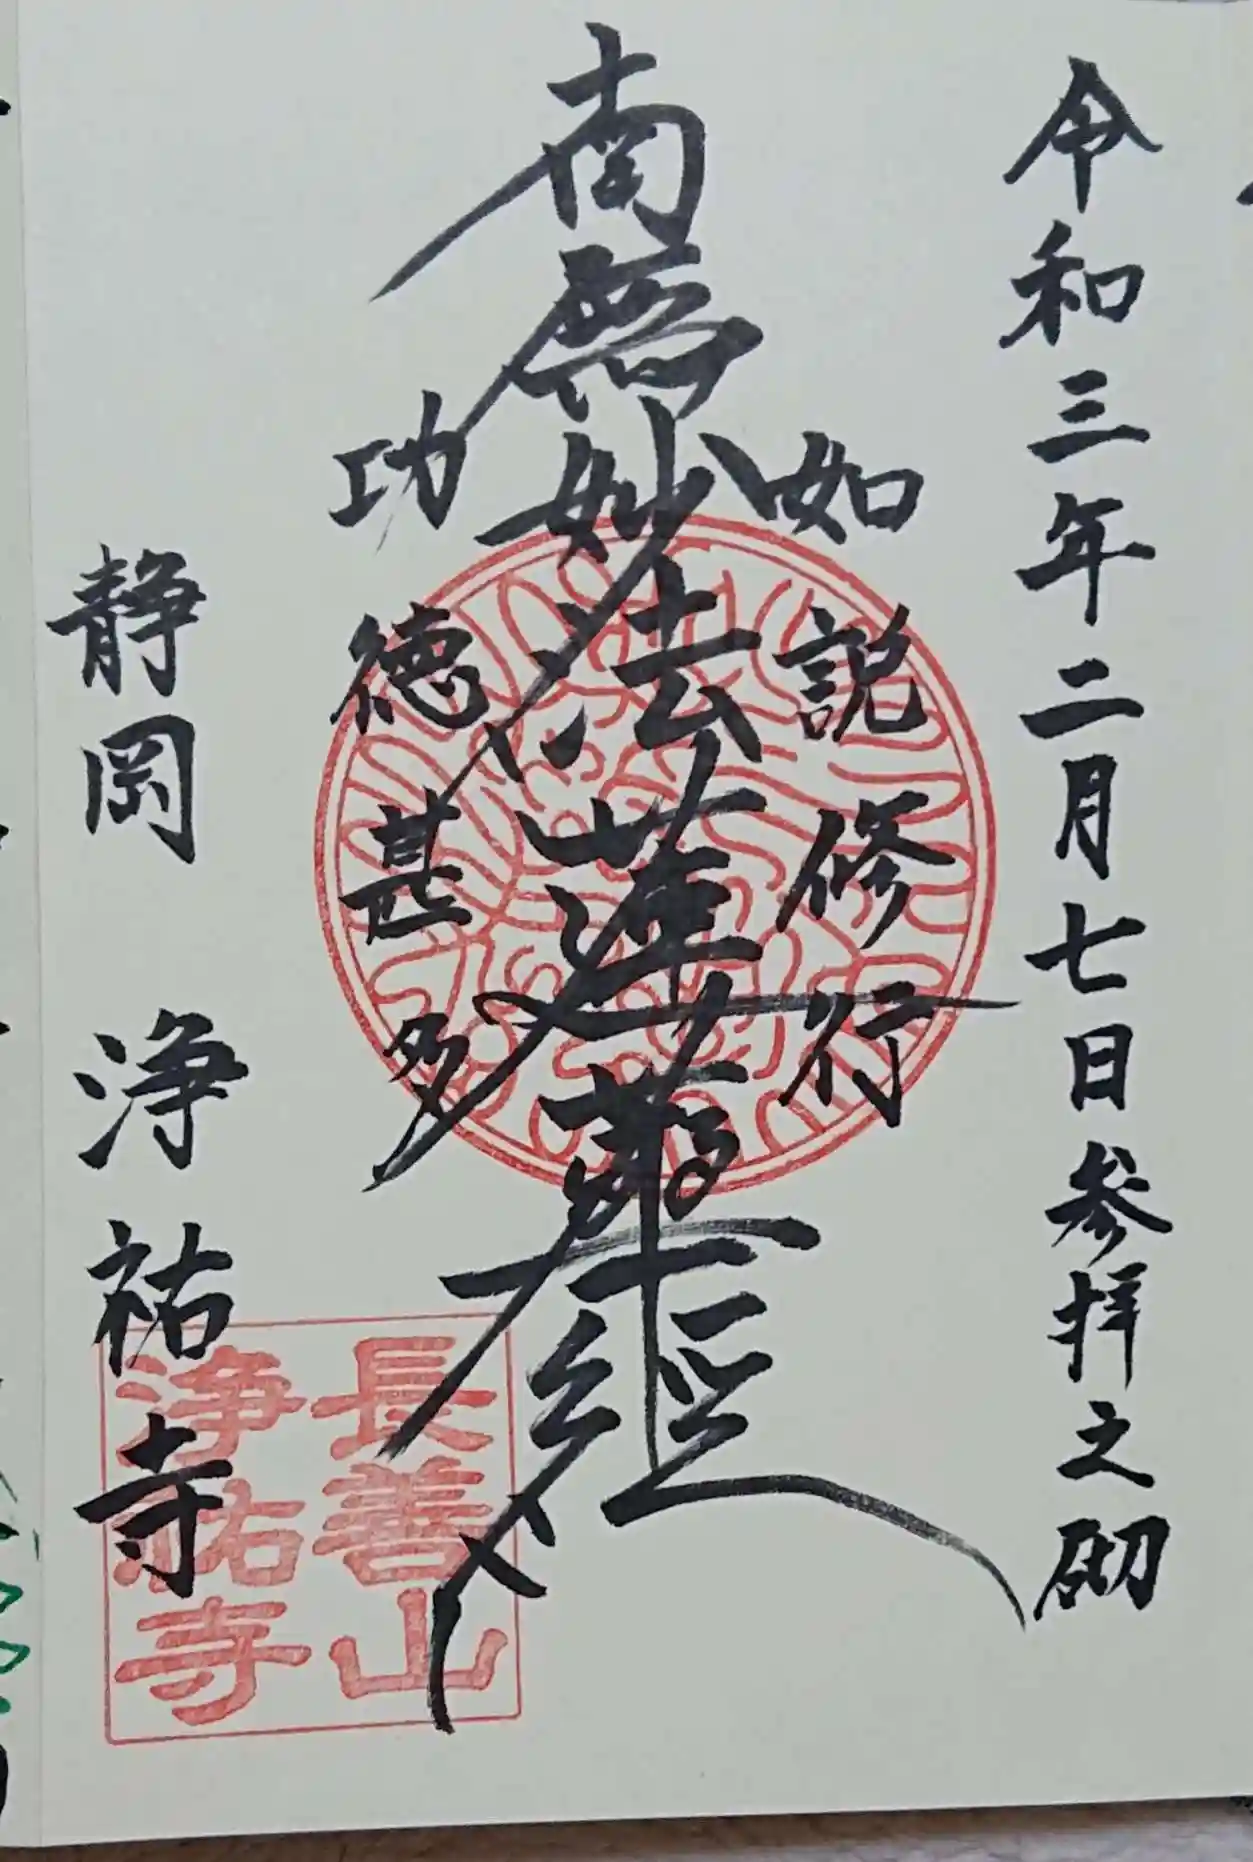 令和三年二月七日参拝之砌
如説修行
南無妙法蓮華経
功徳甚多
静岡 浄祐寺
長善山
浄祐寺